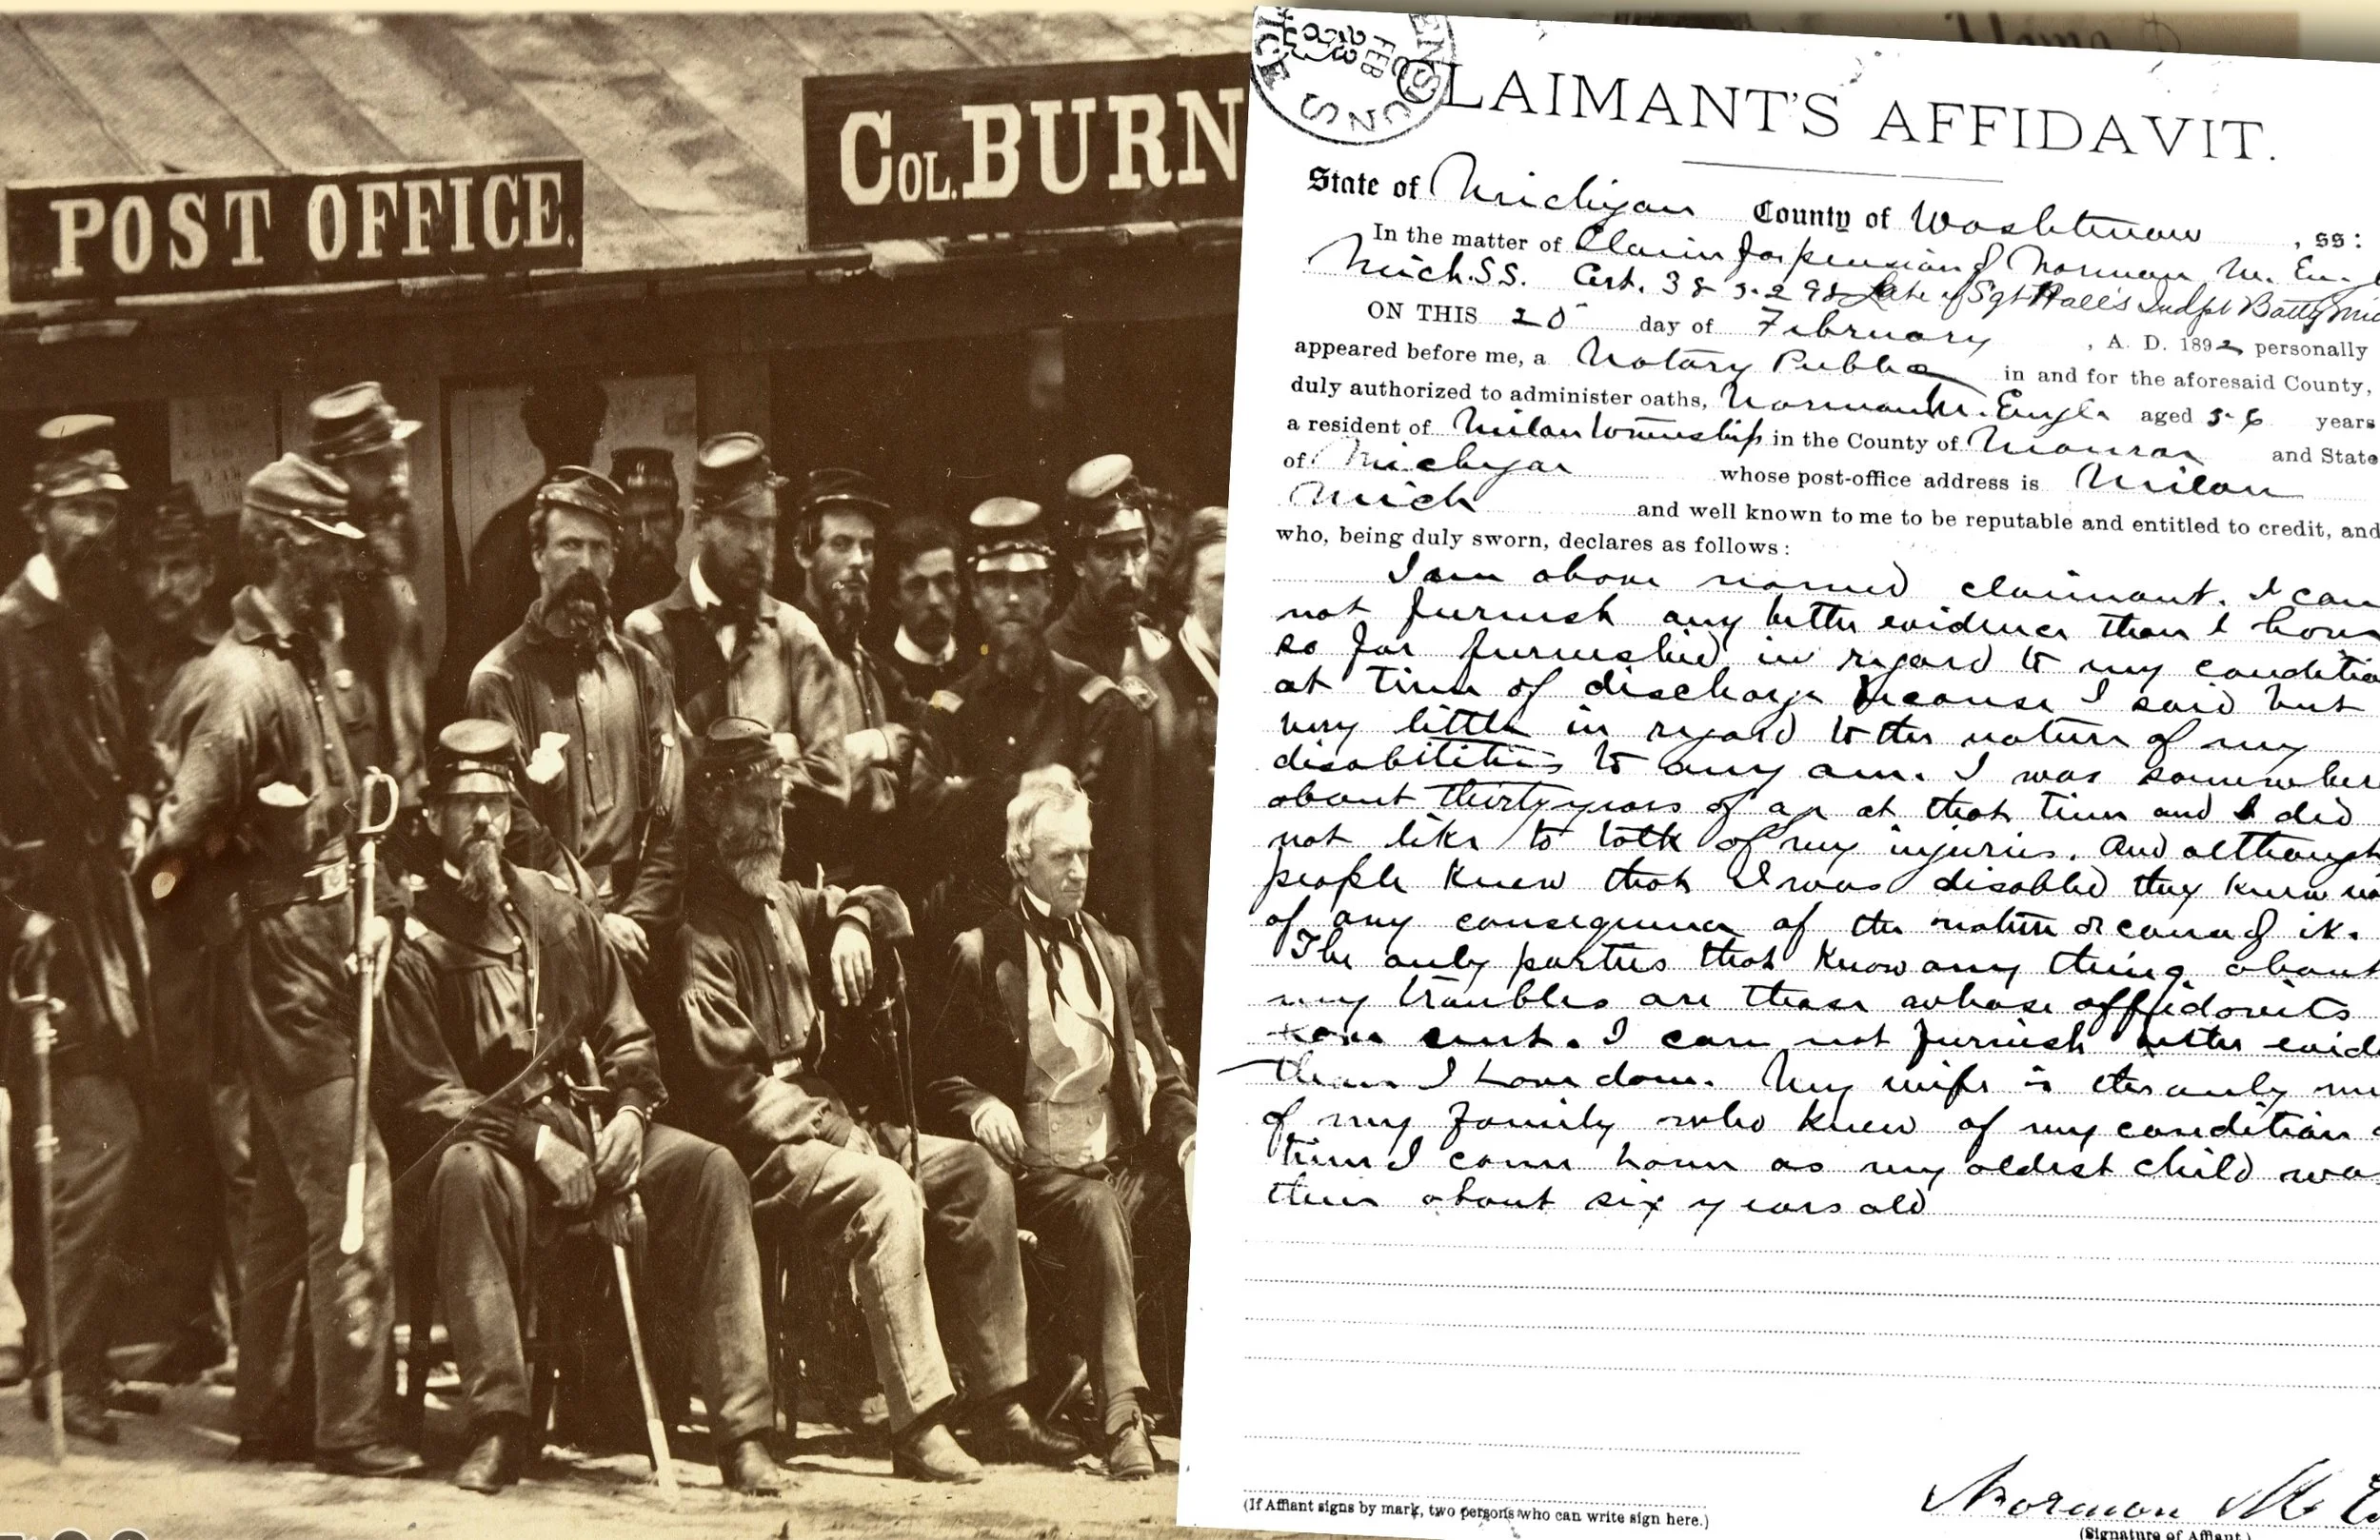 POST OFFICE.
COL. BURN
PENSION
FEB
CLAIMANT'S AFFIDAVIT.
State of Michigan County of Washtenaw , ss:
In the matter of Claim for pension of Norman M. Eng
Mich. S.S. Cert. 385.298 Late of Sgt Hall's Indpt Batty Mic
ON THIS 20 day of February , A. D. 1892 personally
appeared before me, a Notary Public in and for the aforesaid County,
duly authorized to administer oaths, Norman M. Engle aged 56 years
a resident of Milan Township in the County of Monroe and State
of Michigan whose post-office address is Milan
Mich and well known to me to be reputable and entitled to credit, and
who, being duly sworn, declares as follows:
I am above named claimant. I can
not furnish any better evidence than I have
so far furnished in regard to my conditio
at time of discharge because I said but
very little in regard to the nature of my
disabilities to any one. I was somewher
about thirty years of age at that time and I did
not like to talk of my injuries. And although
people knew that I was disabled they knew no
of any consequence of the nature or cause of it.
The only parties that know any thing about
my troubles are those whose affidavits
have sent. I can not furnish better evid
than I have done. My wife is the only me
of my family who knew of my condition a
time I came home as my oldest child was
then about six years old
(If Affiant signs by mark, two persons who can write sign here.)
Norman M. E
(Signature of Affiant.)